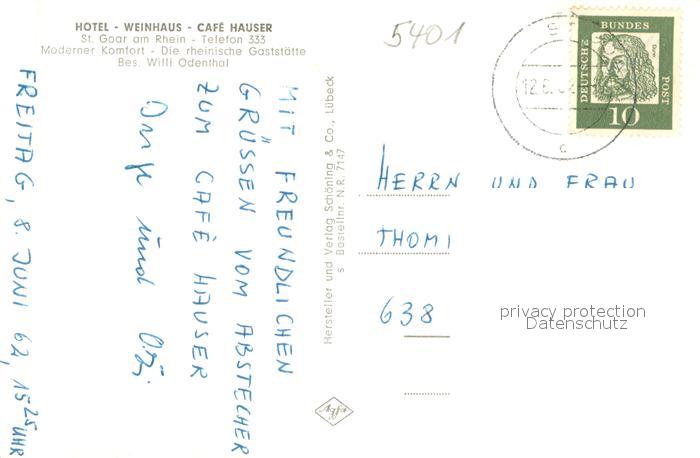 HOTEL - WEINHAUS - CAFÉ HAUSER
St. Goar am Rhein - Telefon 333
Moderner Komfort - Die rheinische Gaststätte
Bes. Willi Odenthal
5401
DEUTSCHE
BUNDES
POST
Dürer
10
12.6.62
c
MIT FREUNDLICHEN
GRÜSSEN VOM ABSTECHER
ZUM CAFÉ HAUSER
und
FREITAG, 8. JUNI 62, 15 25 UHR
Hersteller und Verlag Schöning & Co., Lübeck
s Bestellnr. N.R. 7147
HERRN UND FRAU
THOMI
638
privacy protection
Datenschutz
Agfa